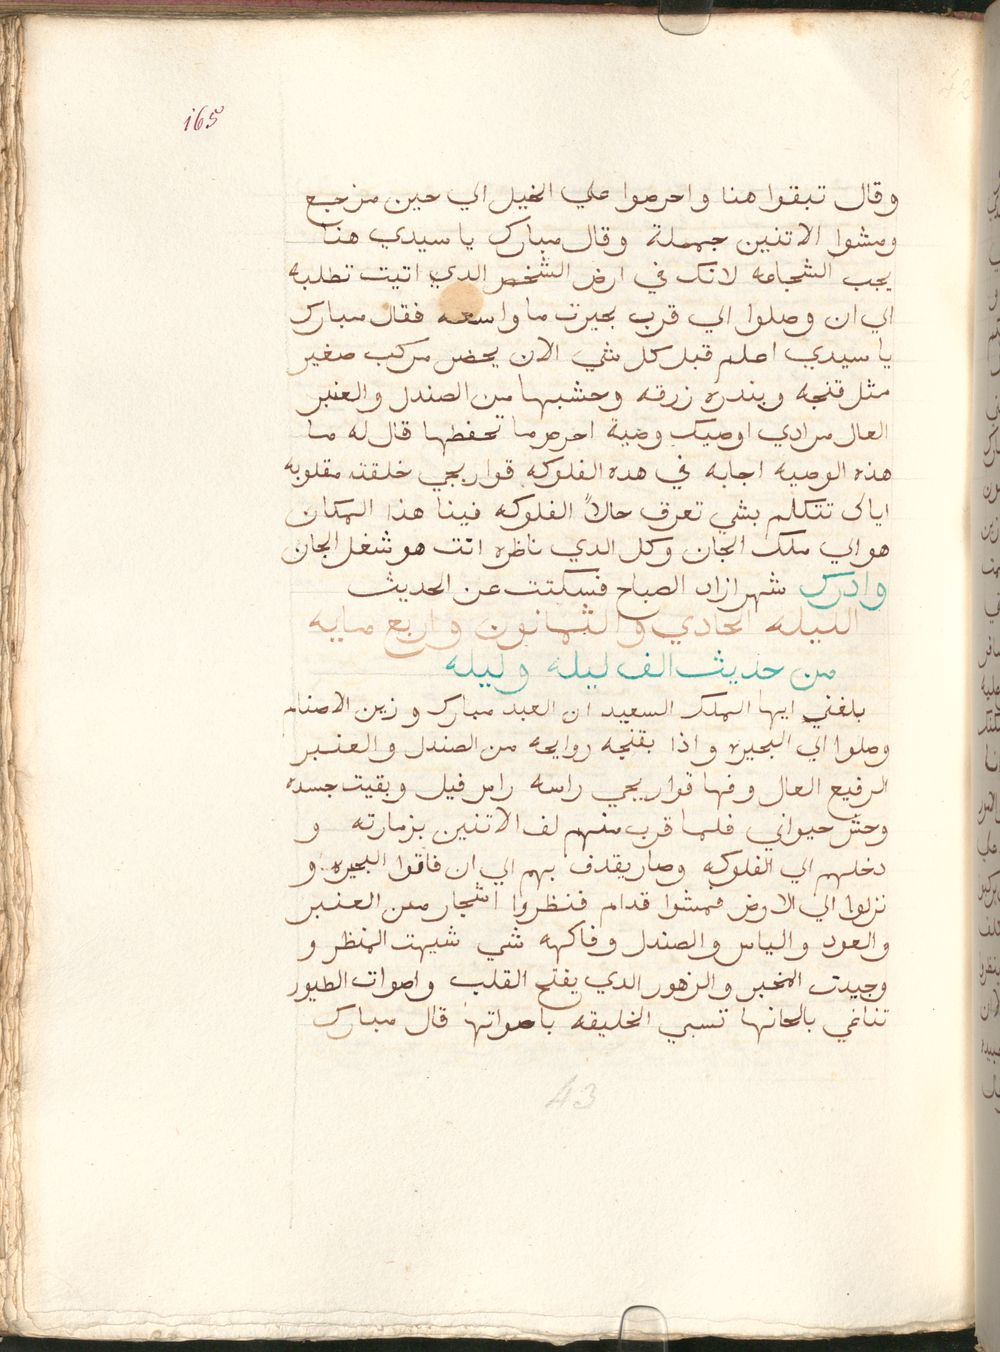 165
وقال تبقوا هنا واحرصوا علي الخيل الي حين مرجع
ومشوا الاتنين جمله وقال مبارك يا سيدي هنا
يجب الشجاعه لانك في ارض الشخص الدي اتيت تطلبه
الي ان وصلوا الي قرب بحيرت ما واسعه فقال مبارك
يا سيدي اعلم قبل كل شي الان يحضر مركب صغير
مثل قنجه وبندره زرقه وخشبها من الصندل والعنبر
العال مرادي اوصيك وصية احرص ما تحفظها قال له ما
هذه الوصيه اجابه في هده الفلوكه قواريجي خلقته مقلوبه
اياك تتكلم بشي تغرق حالاً الفلوكه فينا هذا المكان
هو الي ملك الجان وكل الدي ناظره انت هو شغل الجان
وادرك شهرازاد الصباح فسكتت عن الحديث
الليله الحادي والثمانون واربع مايه
من حديث الف ليلة وليله
بلغني ايها الملك السعيد ان العبد مبارك وزين الاصنام
وصلوا الي البحيره واذا بقنجه روايحه من الصندل والعنبر
الرفيع العال وفها قواريجي راسه راس فيل وبقيت جسده
وحش حيواني فلما قرب منهم لف الاتنين بزمارته و
دخلهم الي الفلوكه وصار يقدف بهم الي ان فاقوا البحيره و
نزلوا الي الارض فمشوا قدام فنظروا اشجار من العنبر
والعود والياس والصندل وفاكهه شي شهيت المنظر و
وجيدت المخبر والزهور الدي يفتح القلب واصوات الطيور
تناغي بالحانها تسبي الخليقه باصواتها قال مبارك
43